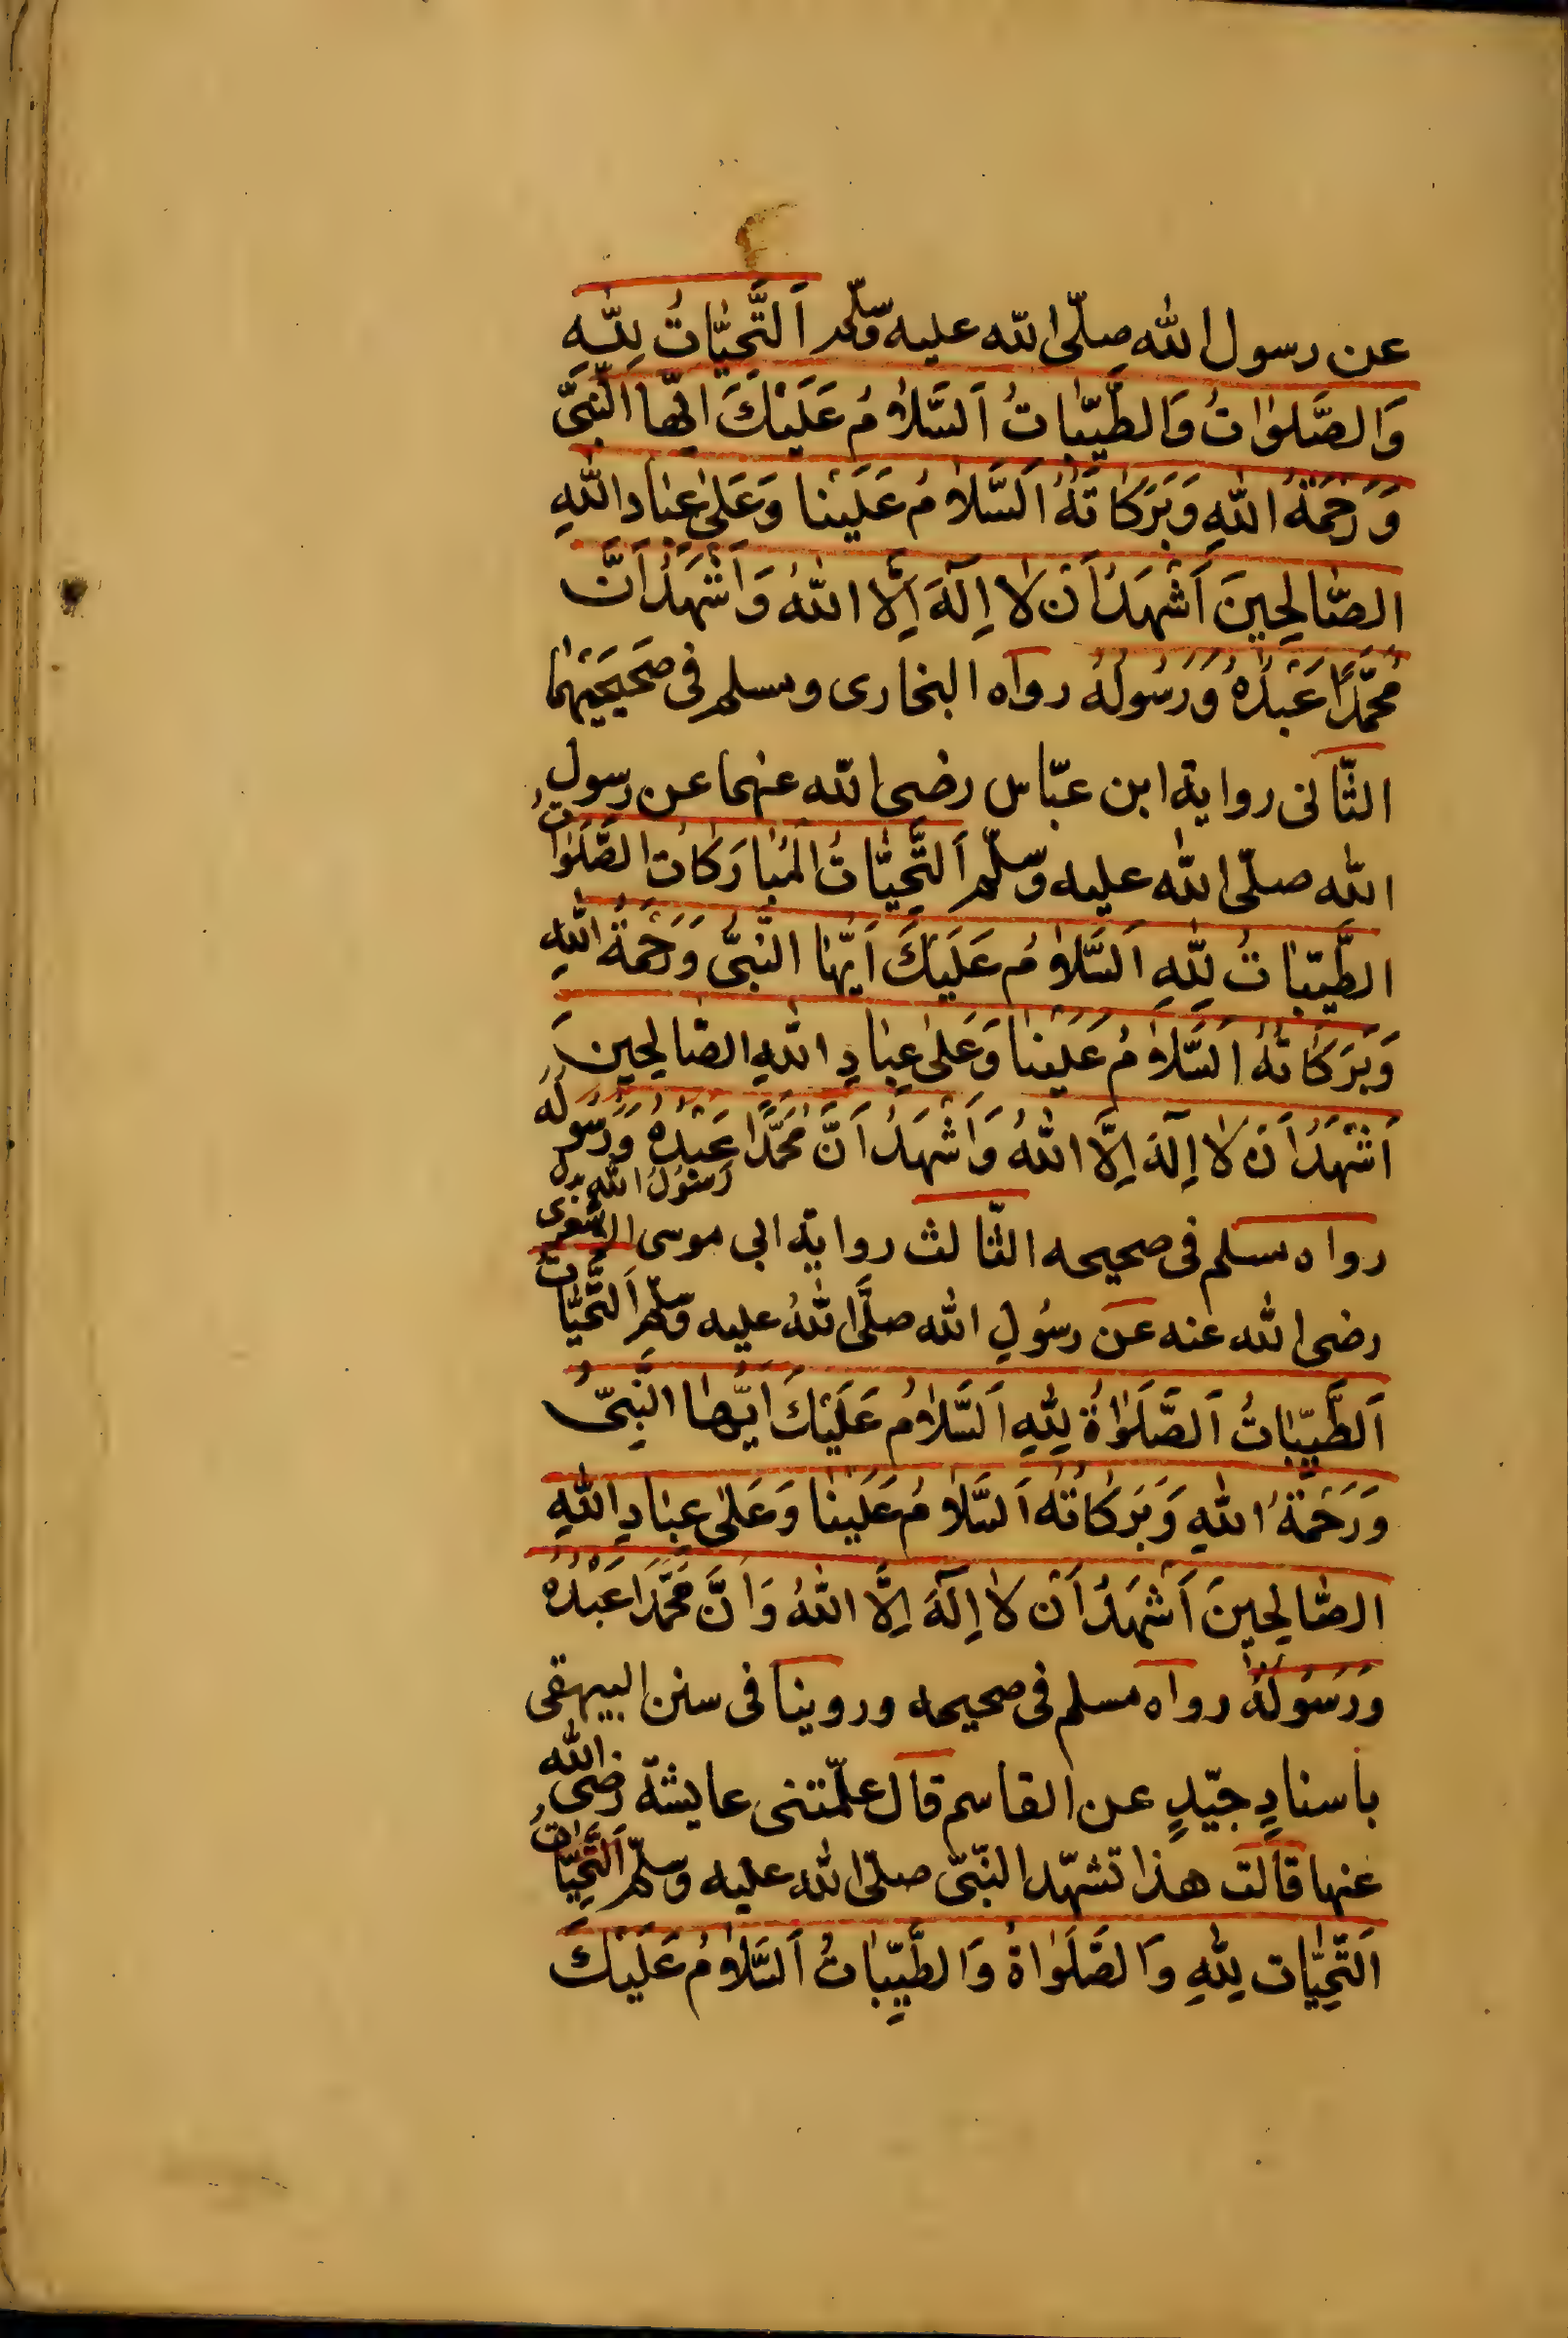 عن رسول الله صلّى الله عليه وسلّم اَلتَّحِيّٰاتُ لِلّٰهِ
وَالصَّلَوٰاتُ وَالطَّيِّبٰاتُ اَلسَّلٰامُ عَلَيْكَ ايّها النَّبِيَّ
وَرَحْمَةُ اللّٰهِ وَبَرَكٰاتَهُ اَلسَّلٰامُ عَلَيْنا وَعَلىٰ عِبٰاد اللّٰهِ
الصّٰالِحِينَ اَشْهَدُ اَنْ لٰا اِلٓهَ اِلَّا اللّٰهُ وَاَشْهَدُ اَنَّ
مُحَمَّدًا عَبْدُهُ وَرَسُولُهُ رواه البخارى ومسلم فى صَحيحَيْهمٰا
الثّانى رواية ابن عبّاس رضى الله عنهما عن رسول
الله صلّى الله عليه وسلّم اَلتَّحِيّٰاتُ المُبٰارَكٰات الصَّلَوٰاتُ
الطَّيِّبٰاتُ لِلّٰهِ اَلسَّلٰامُ عَلَيْكَ اَيُّهٰا النَّبىُّ وَرَحْمَةُ اللّٰهِ
وَبَرَكٰاتُهُ اَلسَّلٰامُ عَلَيْنٰا وَعَلىٰ عِبٰادِ اللّٰهِ الصّٰالِحِينَ
اَشْهَدُ اَنْ لٰا اِلٓهَ اِلَّا اللّٰهُ وَاَشْهَدُ اَنَّ مُحَمَّدًا عَبْدُهُ وَرَسُولُهُ
رَسُولُ اللّٰهِ
رواه مسلم فى صحيحه الثّالث رواية ابى موسى الاشعرى
رضى الله عنه عن رسُولِ الله صلَّى اللّٰهُ عليه وسلّم اَلتَّحِيّٰاتُ
اَلطَّيِّبٰاتُ اَلصَّلَوٰاةُ لِلّٰهِ اَلسَّلٰامُ عَلَيْكَ اَيُّهٰا النَّبِىُّ
وَرَحْمَةُ اللّٰهِ وَبَرَكٰاتُهُ اَلسَّلٰامُ عَلَيْنٰا وَعَلىٰ عِبٰادِ اللّٰهِ
الصّٰالِحِينَ اَشْهَدُ اَنْ لٰا اِلٓهَ اِلَّا اللّٰهُ وَاَنَّ مُحَمَّدَا عَبْدُهُ
وَرَسُولُهُ رواه مسلم فى صحيحه وروينا فى سنن البيهقى
باسنادٍ جيّدٍ عن القاسم قال علّمتنى عايشة رضى الله
عنها قالت هذا تشهّد النّبىّ صلّى الله عليه وسلّم اَلتَّحِيّٰاتُ
اَلتَّحِيّٰات لِلّٰهِ وَالصَّلَوٰاةُ وَالطَّيِّبٰاتُ اَلسَّلٰامُ عَلَيْكَ